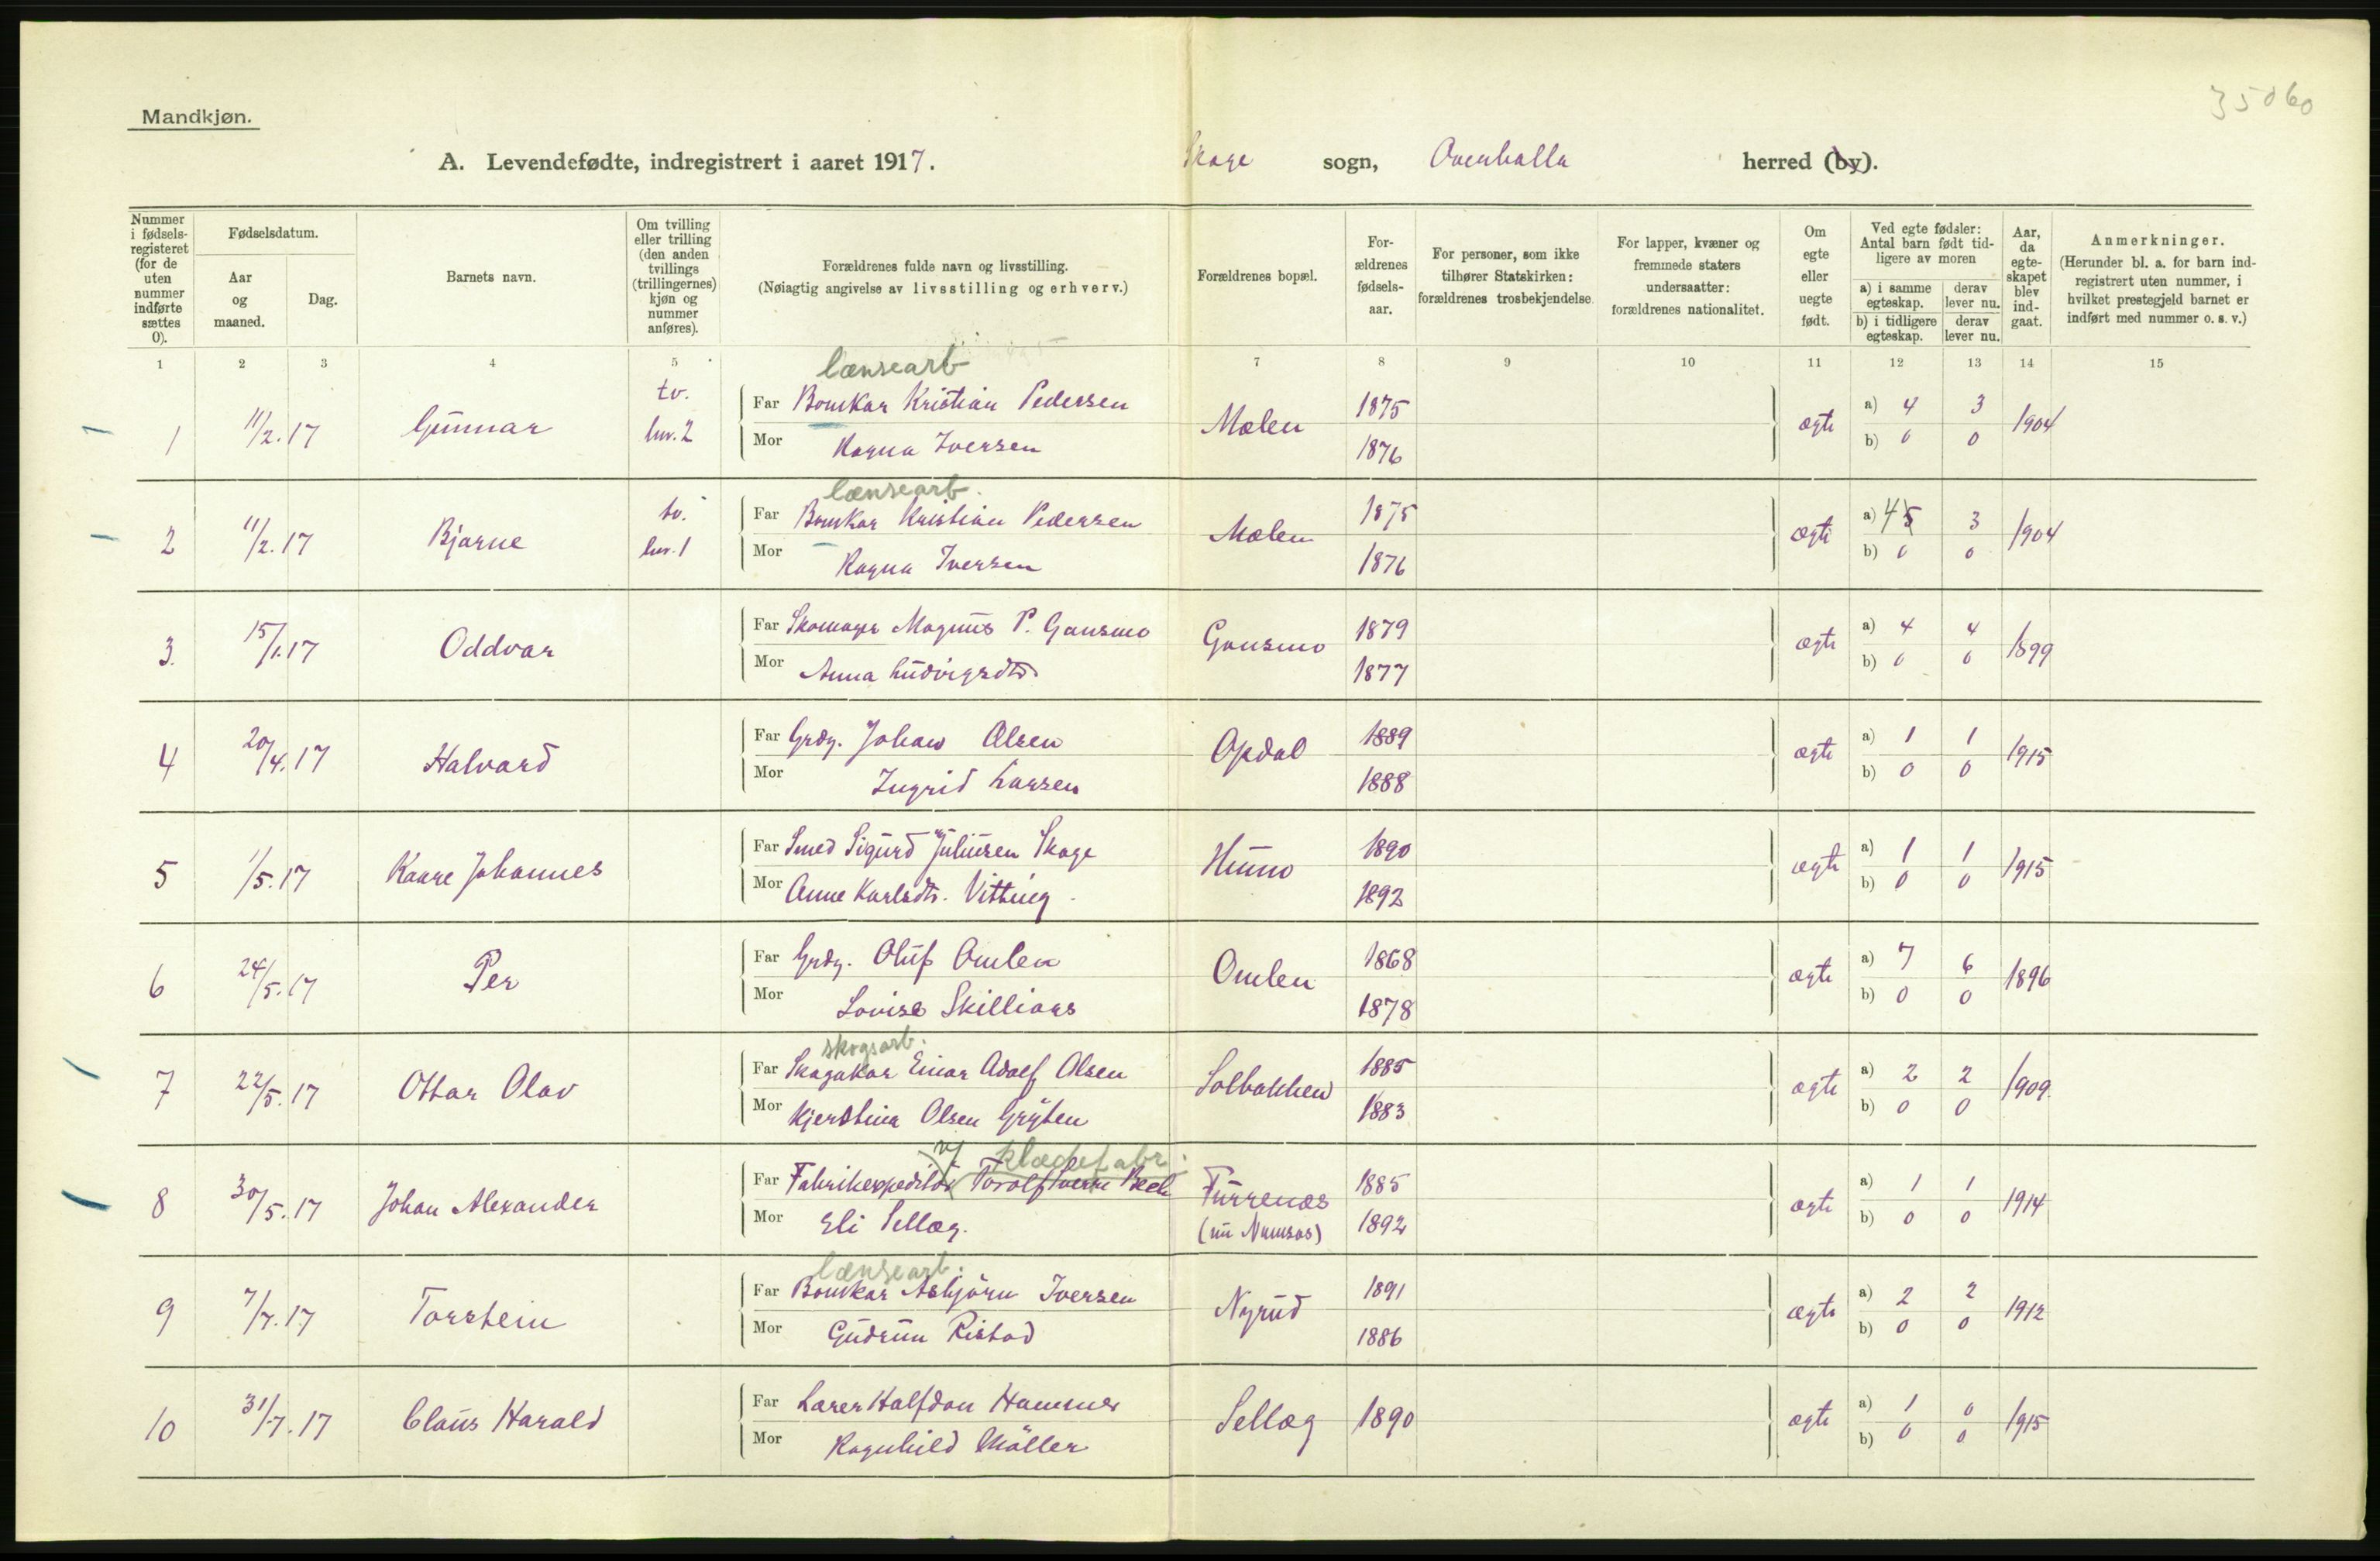 35060
Mandkjøn.
A. Levendefødte, indregistrert i aaret 1917. Skage sogn, Overhalla herred (by).
Nummer i fødsels-registeret (for de uten nummer indførte sættes 0).
Fødselsdatum.
Aar og maaned.
Dag.
Barnets navn.
Om tvilling eller trilling (den anden tvillings (trillingernes) kjøn og nummer anføres).
Forældrenes fulde navn og livsstilling.
(Nøiagtig angivelse av livsstilling og erhverv.)
Forældrenes bopæl.
For-ældrenes fødsels-aar.
For personer, som ikke tilhører Statskirken: forældrenes trosbekjendelse.
For lapper, kvæner og fremmede staters undersaatter: forældrenes nationalitet.
Om egte eller uegte født.
Ved egte fødsler: Antal barn født tid-ligere av moren
a) i samme egteskap.
derav lever nu.
b) i tidligere egteskap.
derav lever nu.
Aar, da egte-skapet blev ind-gaat.
Anmerkninger.
(Herunder bl. a. for barn ind-registrert uten nummer, i hvilket prestegjeld barnet er indført med nummer o. s. v.)
1 2 3 4 5 7 8 9 10 11 12 13 14 15
lænsearb
1 11/2.17 Gunnar tv. hnr. 2 Far Bomkar Kristian Pedersen Mælen 1875 ægte a) 4 3 1904
Mor Ragna Iversen 1876 b) 0 0
lænsearb.
2 11/2.17 Bjarne tv. hnr. 1 Far Bomkar Kristian Pedersen Mælen 1875 ægte a) 4 5 3 1904
Mor Ragna Iversen 1876 b) 0 0
3. 15/1.17 Oddvar Far Skomager Magnus P. Gansmo Gansmo 1879 ægte a) 4 4 1899
Mor Anna Ludvigsdtr. 1877 b) 0 0
4 20/4.17 Halvard Far Grdg. Johan Olsen Opdal 1889 ægte a) 1 1 1915
Mor Ingrid Larsen 1888 b) 0 0
5 1/5.17 Kaare Johannes Far Smed Sigurd Juliusen Skage Hunno 1890 ægte a) 1 1 1915
Mor Anne Karlsdtr. Vitting 1892 b) 0 0
6 24/5.17 Per Far Grdg. Oluf Amlen Amlen 1868 ægte a) 7 6 1896
Mor Lovise Skilliaas 1878 b) 0 0
skogsarb.
7 22/5.17 Ottar Olav Far Skogakar Einar Adolf Olsen Solbakken 1885 ægte a) 2 2 1909
Mor Kjerstina Olsen Gryten 1883 b) 0 0
v/ klædefabr.
8 30/5.17 Johan Alexander Far Fabrikexpeditør Torolf Sverre Bech Furrenæs 1885 ægte a) 1 1 1914
Mor Eli Sellæg. (nu Namsos) 1892 b) 0 0
lænsearb.
9 7/7.17 Torstein Far Bomkar Asbjörn Iversen Nyrud 1891 ægte a) 2 2 1912
Mor Gudrun Ristad 1886 b) 0 0
10 31/7.17 Claus Harald Far Lærer Halfdan Hammer Sellæg 1890 ægte a) 1 0 1915
Mor Ragnhild Möller b) 0 0